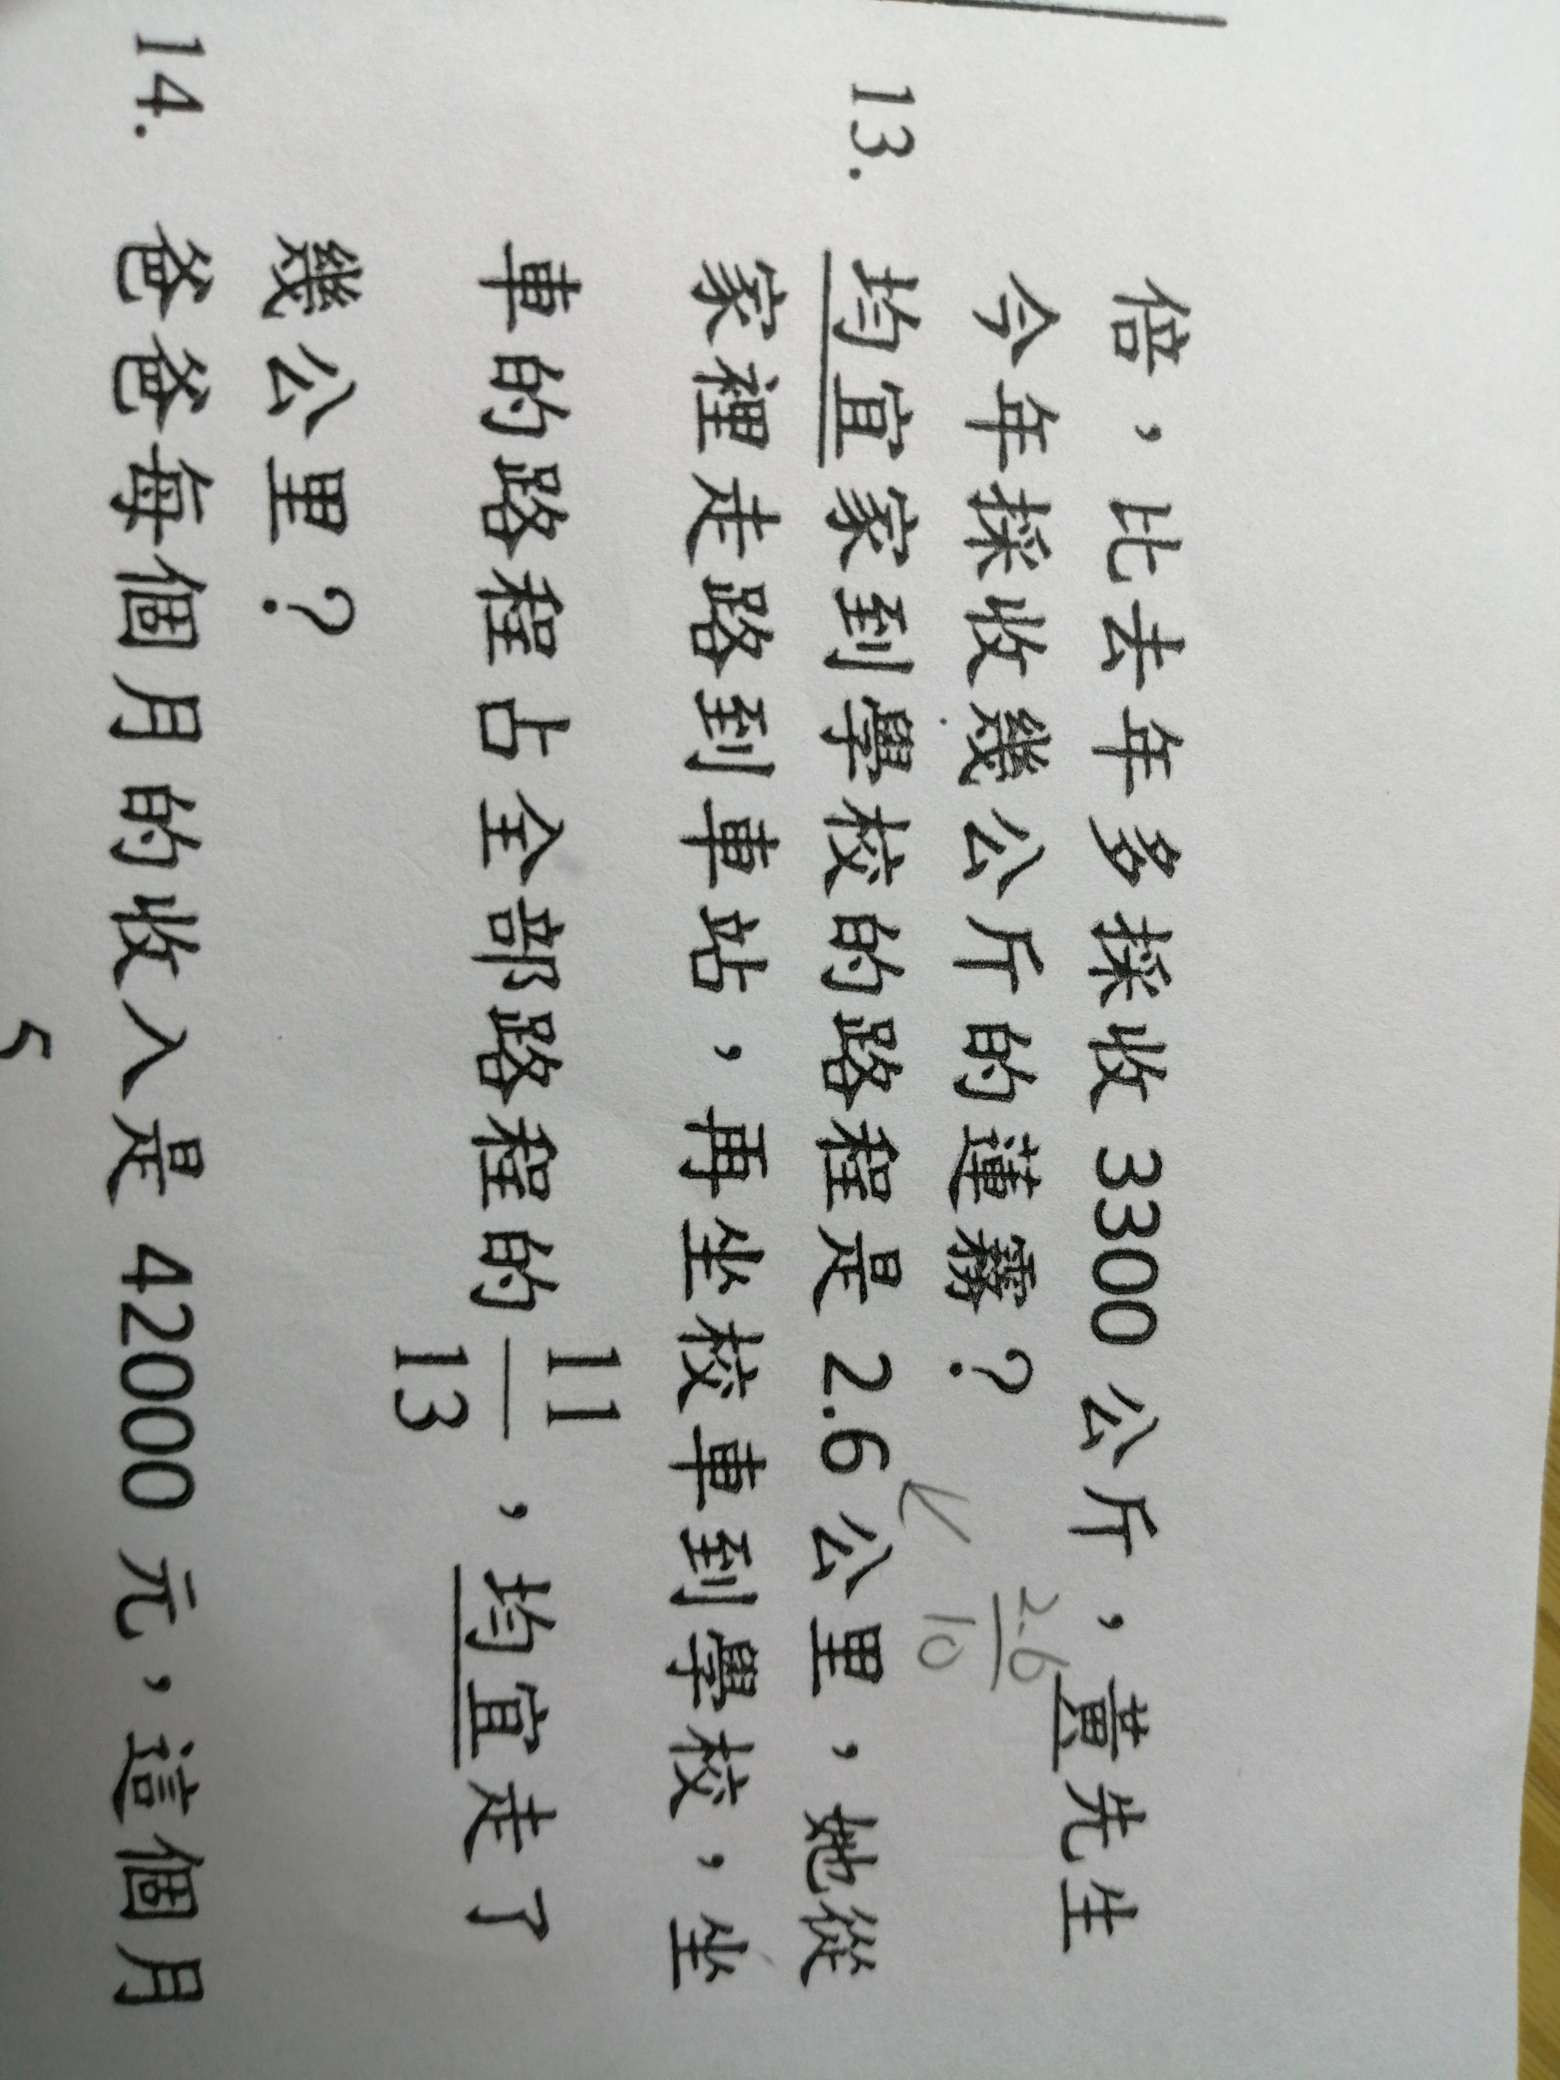 倍，比去年多採收 3300 公斤，黃先生
今年採收幾公斤的蓮霧？
2.6
10
13. 均宜家到學校的路程是 2.6 公里，她從
家裡走路到車站，再坐校車到學校，坐
車的路程占全部路程的 11/13，均宜走了
幾公里？
14. 爸爸每個月的收入是 42000 元，這個月
5